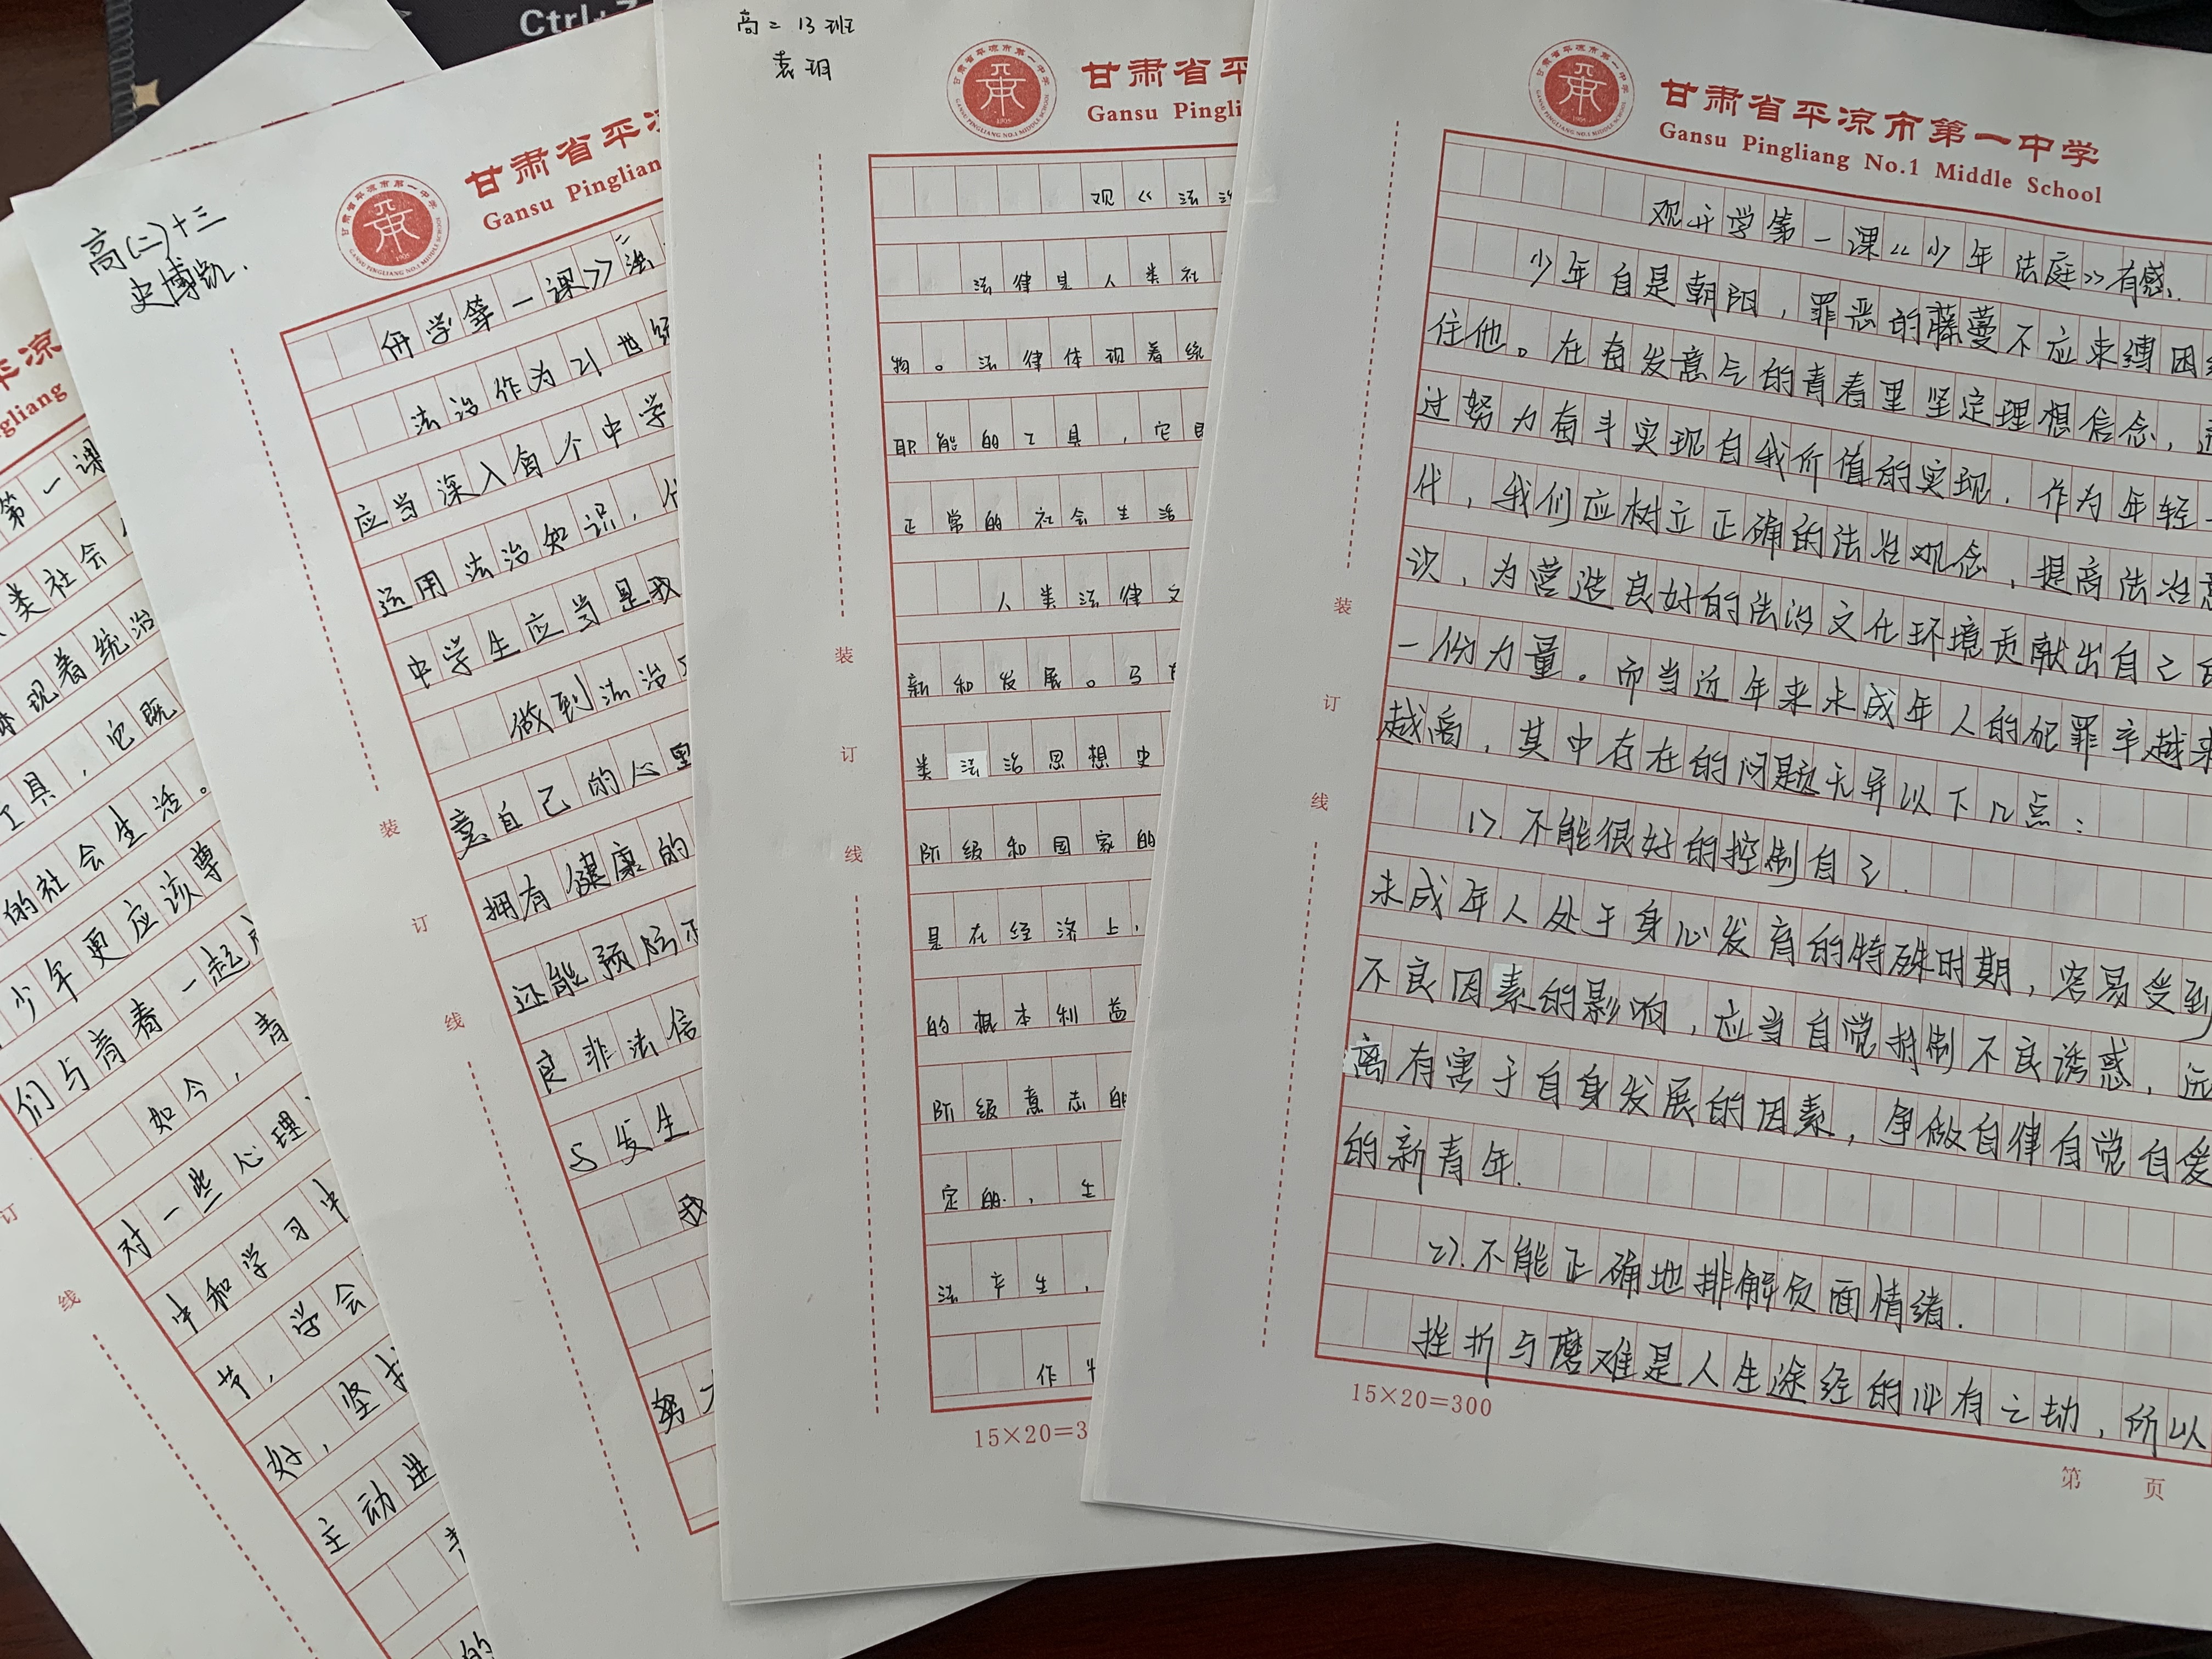 Ctrl+Z
第一课
类社会
体现着统治
工具，它既
的社会生活。
少年更应该尊
们与青春一起
如今，青
对一些心理
中和学习中
节，学会
好，坚
主动进
的
订
线
高(二)十三
史博凯.
甘肃省平
Gansu Pinglian
开学第一课》法
法治作为21世纪
应当深入每个中学
运用法治知识，
中学生应当是我
做到法治
意自己的心里
拥有健康的
还能预防
良非法信
发生
我
努力
装
订
线
高二13班
袁玥
甘肃省平
Gansu Pingli
观《法治
法律是人类社
物。法律体现着统
职能的工具，它
正常的社会生活
人类法律文
新和发展。马
类法治思想史
阶级和国家的
是在经济上，
的根本利益
阶级意志的
定的.，生
法产生，
作
15×20=3
装
订
线
甘肃省平凉市第一中学
Gansu Pingliang No.1 Middle School
观开学第一课《少年法庭》有感.
少年自是朝阳，罪恶的藤蔓不应束缚困
住他。在奋发意气的青春里坚定理想信念，通
过努力奋斗实现自我价值的实现．作为年轻一
代，我们应树立正确的法治观念，提高法治意
识，为营造良好的法治文化环境贡献出自己的
一份力量。而当近年来未成年人的犯罪率越来
越高，其中存在的问题无异以下几点：
1>.不能很好的控制自己．
未成年人处于身心发育的特殊时期，容易受到
不良因素的影响，应当自觉抵制不良诱惑，远
离有害于自身发展的因素，争做自律自觉自爱
的新青年.
2>.不能正确地排解负面情绪.
挫折与磨难是人生途经的必有之劫，所以
15×20=300
第 页
装
订
线